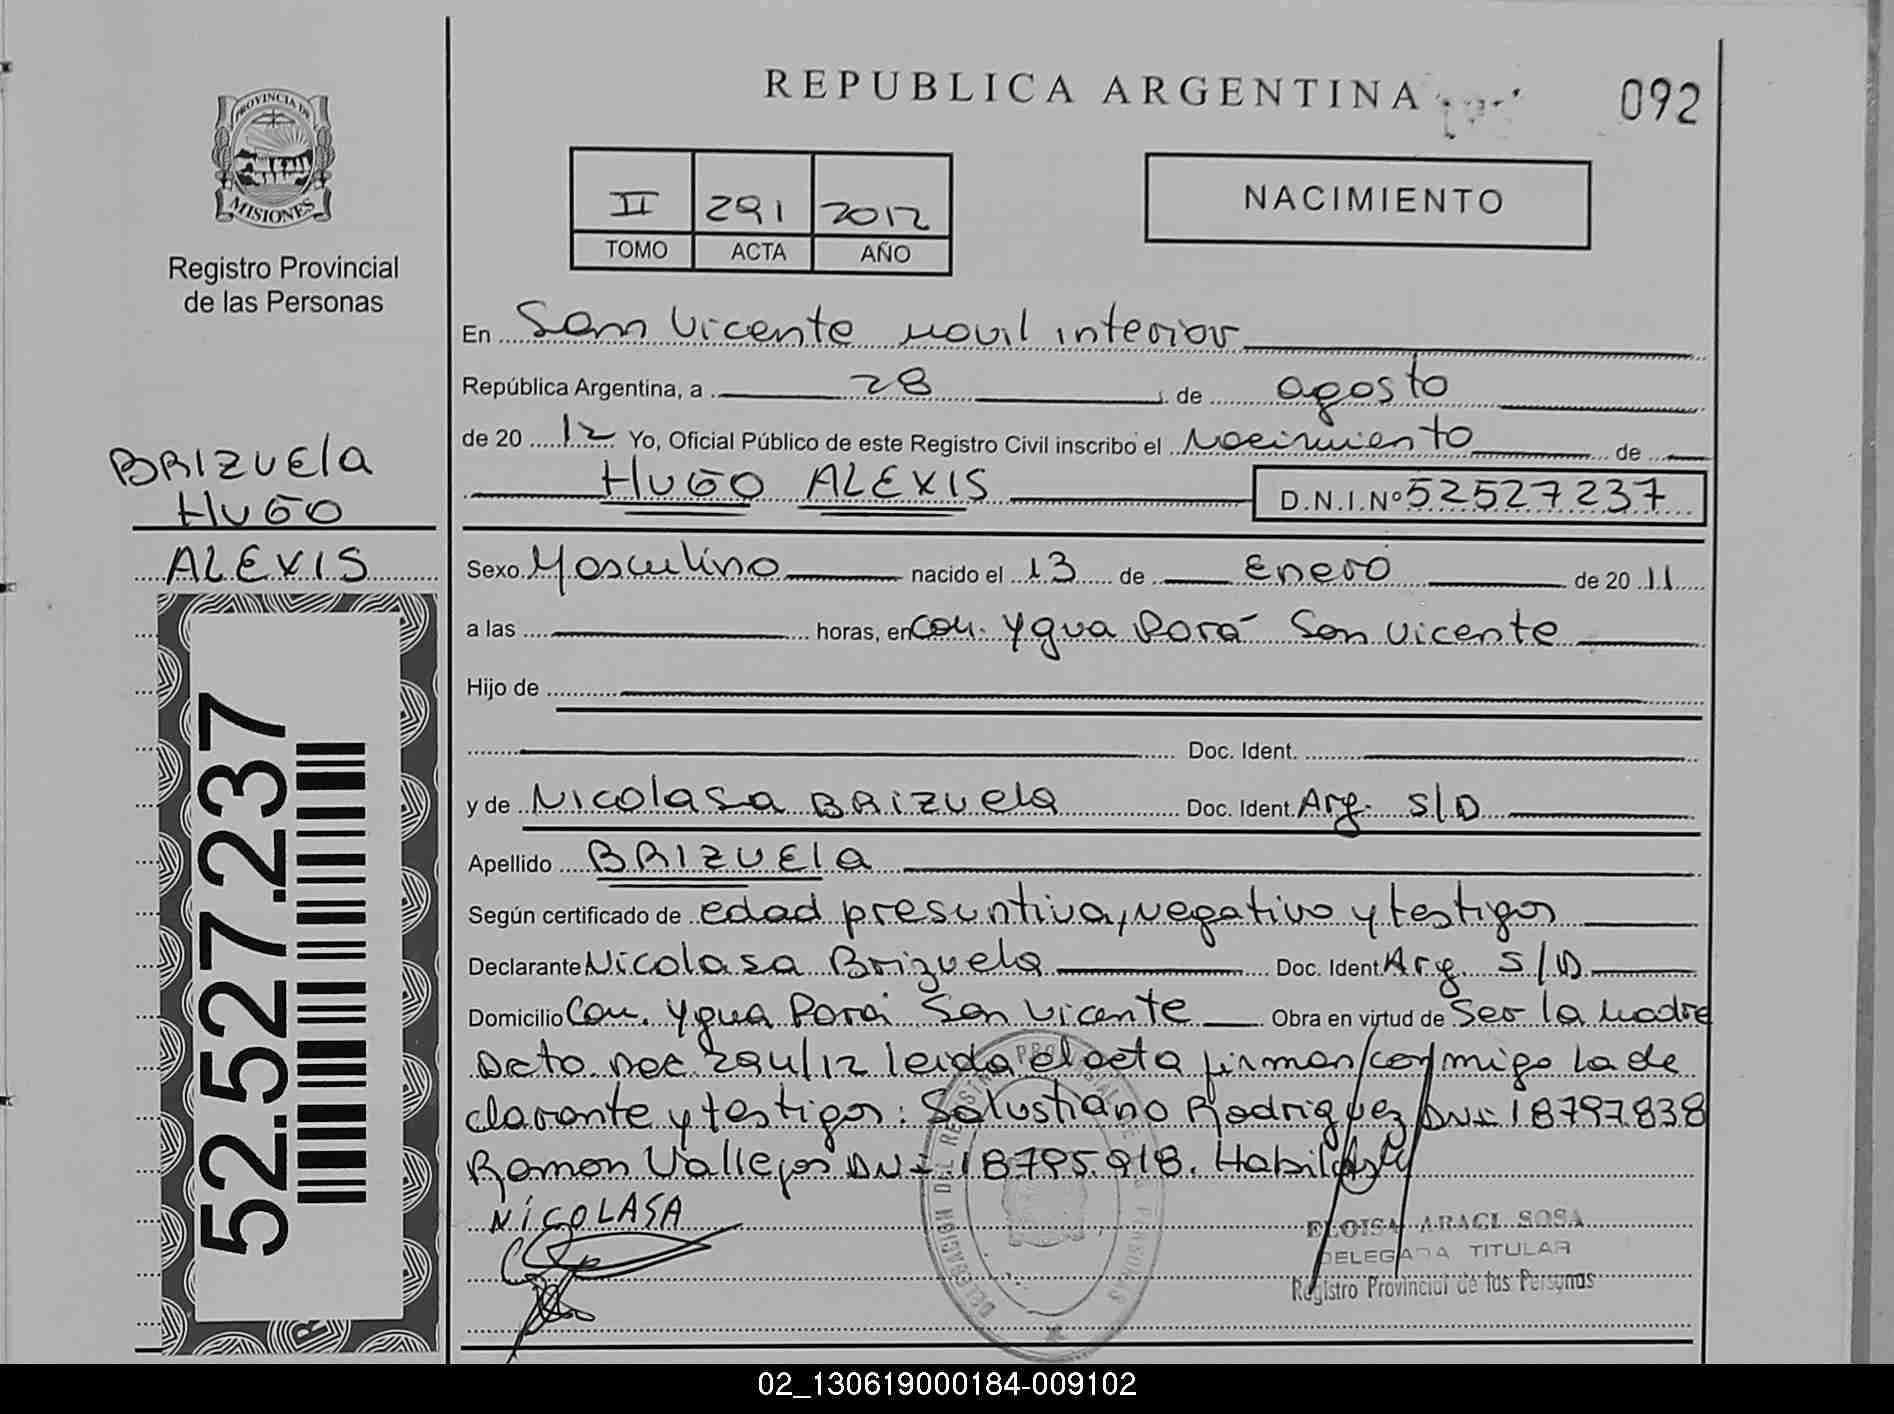 REPUBLICA ARGENTINA
092
PROVINCIA DE
MISIONES
Registro Provincial
de las Personas
II 291 2012
TOMO ACTA AÑO
NACIMIENTO
En San Vicente movil interior
República Argentina, a 28 de agosto
de 20 12 Yo, Oficial Público de este Registro Civil inscribo el Nacimiento de
HUGO ALEXIS D.N.I.Nº 52527237
BRIZUELA
HUGO
ALEXIS
52.527.237
Sexo Masculino nacido el 13 de Enero de 20 11
a las horas, en Col. Ygua Porá San Vicente
Hijo de
Doc. Ident.
y de Nicolasa BRIZUELA Doc. Ident. Arg. S/D
Apellido BRIZUELA
Según certificado de edad presuntiva, negativo y testigos
Declarante Nicolasa Brizuela Doc. Ident Arg. S/D
Domicilio Col. Ygua Porá San Vicente Obra en virtud de Ser la madre
Dcto Nac 294/12 leida el acta firman conmigo la de
clarante y testigos: Salustiano Rodriguez DNI 18797838
Ramon Vallejos DNI 18795918.
NICOLASA
ELOISA ARACI SOSA
DELEGADA TITULAR
Registro Provincial de las Personas
02_130619000184-009102